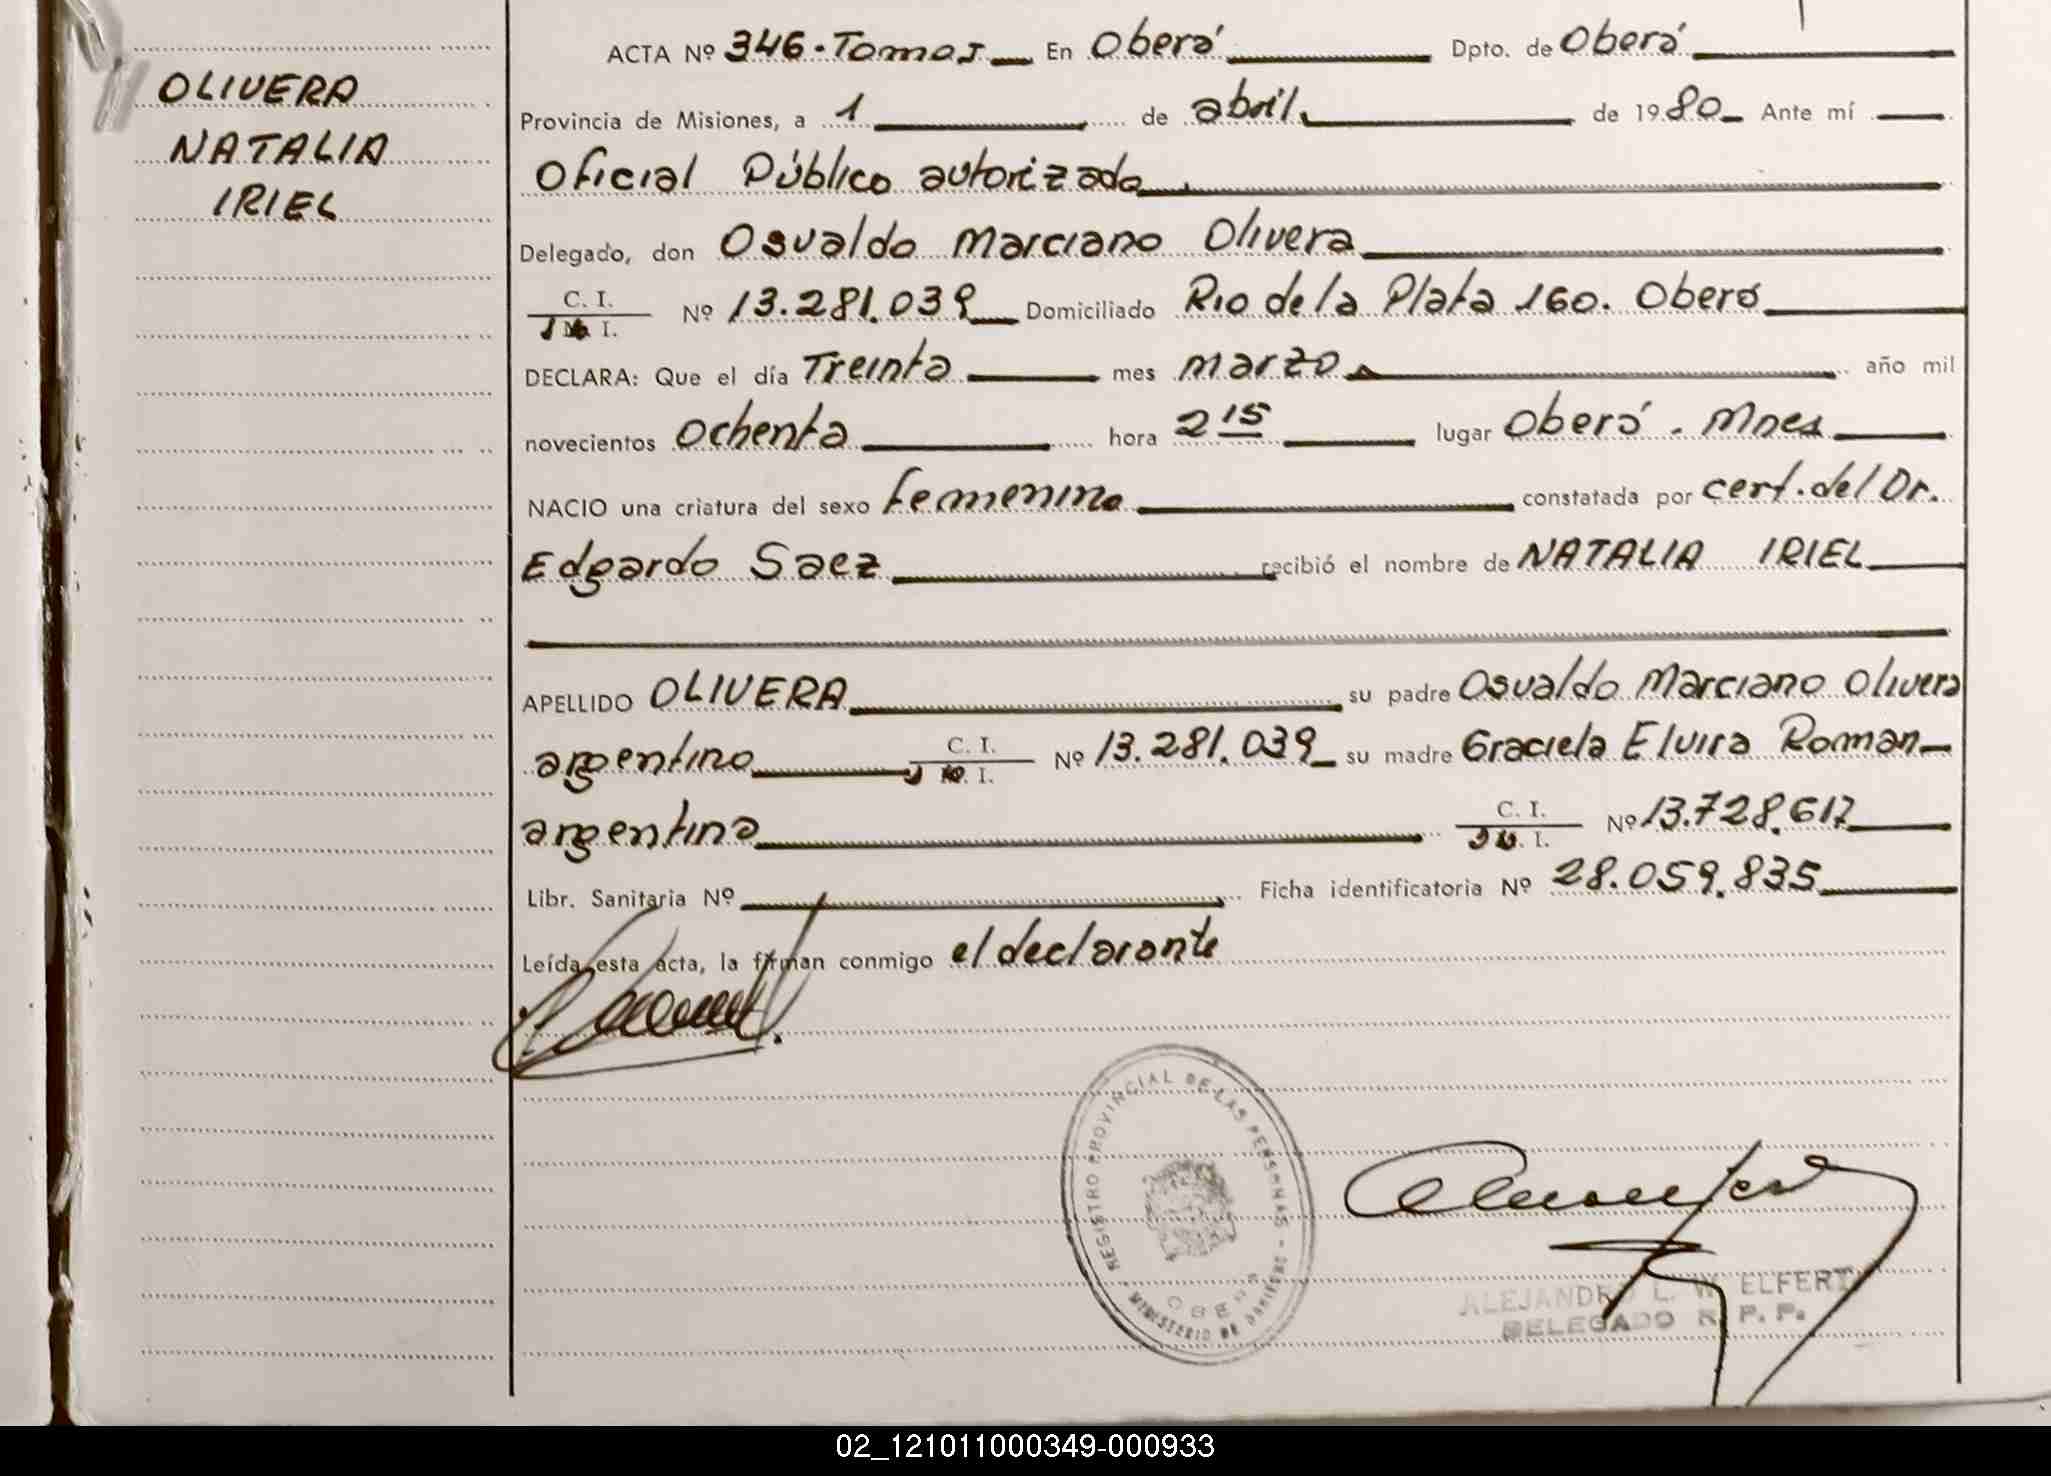 OLIVERA
NATALIA
IRIEL
ACTA Nº 346. Tomo I En Oberá Dpto. de Oberá
Provincia de Misiones, a 1 de abril de 1980 Ante mí
Oficial Público autorizado
Delegado, don Osvaldo Marciano Olivera
C. I.
I. Nº 13.281.039 Domiciliado Rio de la Plata 160. Oberá
DECLARA: Que el día Treinta mes marzo año mil
novecientos Ochenta hora 2 15 lugar Oberá. Mnes
NACIO una criatura del sexo femenino constatada por cert. del Dr.
Edgardo Saez recibió el nombre de NATALIA IRIEL
APELLIDO OLIVERA su padre Osvaldo Marciano Olivera
argentino C. I. I. Nº 13.281.039 su madre Graciela Elvira Roman
argentina C. I. I. Nº 13.728.617
Libr. Sanitaria Nº Ficha identificatoria Nº 28.059.835
Leída esta acta, la firman conmigo el declarante
REGISTRO PROVINCIAL DE LAS PERSONAS - MINISTERIO DE
OBERA
ALEJANDRO L. W. ELFERT
DELEGADO R. P. P.
02_121011000349-000933